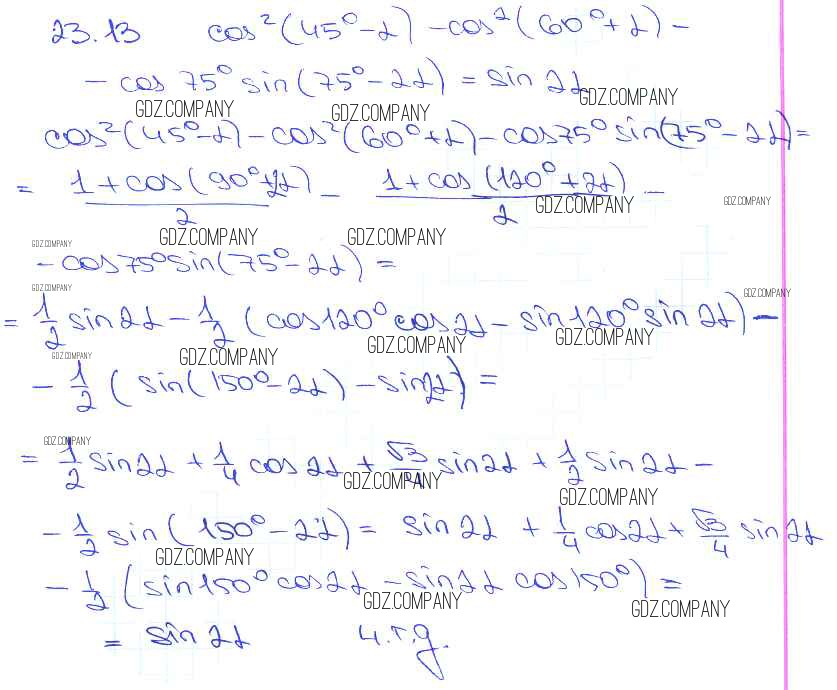 23.13 cos²(45°-α) - cos²(60°+α) -
- cos 75° sin(75°-2α) = sin 2α
GDZ.COMPANY GDZ.COMPANY GDZ.COMPANY
cos²(45°-α) - cos²(60°+α) - cos75° sin(75°-2α) =
= (1+cos(90°+2α))/2 - (1+cos(120°+2α))/2 -
GDZ.COMPANY GDZ.COMPANY
GDZ.COMPANY GDZ.COMPANY GDZ.COMPANY
- cos75° sin(75°-2α) =
GDZ.COMPANY GDZ.COMPANY
= 1/2 sin2α - 1/2 (cos120° cos2α - sin120° sin2α) -
GDZ.COMPANY GDZ.COMPANY GDZ.COMPANY GDZ.COMPANY
- 1/2 (sin(150°-2α) - sin2α) =
GDZ.COMPANY
= 1/2 sin2α + 1/4 cos2α + √3/4 sin2α + 1/2 sin2α -
GDZ.COMPANY GDZ.COMPANY
- 1/2 sin(150°-2α) = sin2α + 1/4 cos2α + √3/4 sin2α
GDZ.COMPANY
- 1/2 (sin150° cos2α - sin2α cos150°) =
GDZ.COMPANY GDZ.COMPANY
= sin2α ч.т.д.